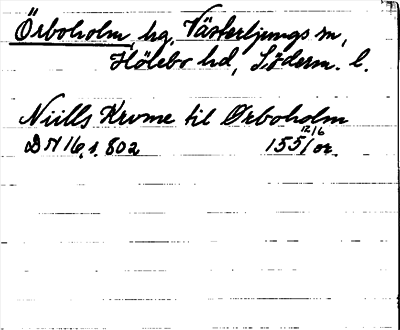 Örboholm, hg, Västerljungs sn,
Hölebo hd, Söderm. l.
Niills Krvme til Ørboholm
12/6
DN 16, s. 802 1551 or.